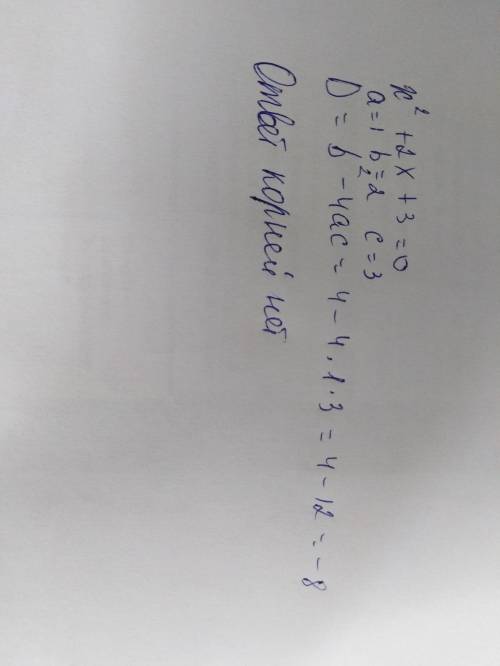 x² + 2x + 3 = 0
a = 1 b = 2 c = 3
D = b² - 4ac = 4 - 4 · 1 · 3 = 4 - 12 = - 8
Ответ корней нет